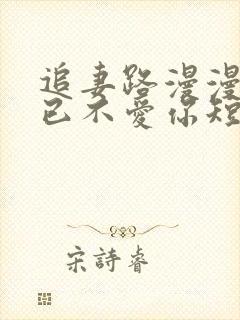 追妻路漫漫
已不愛你短
宋詩睿